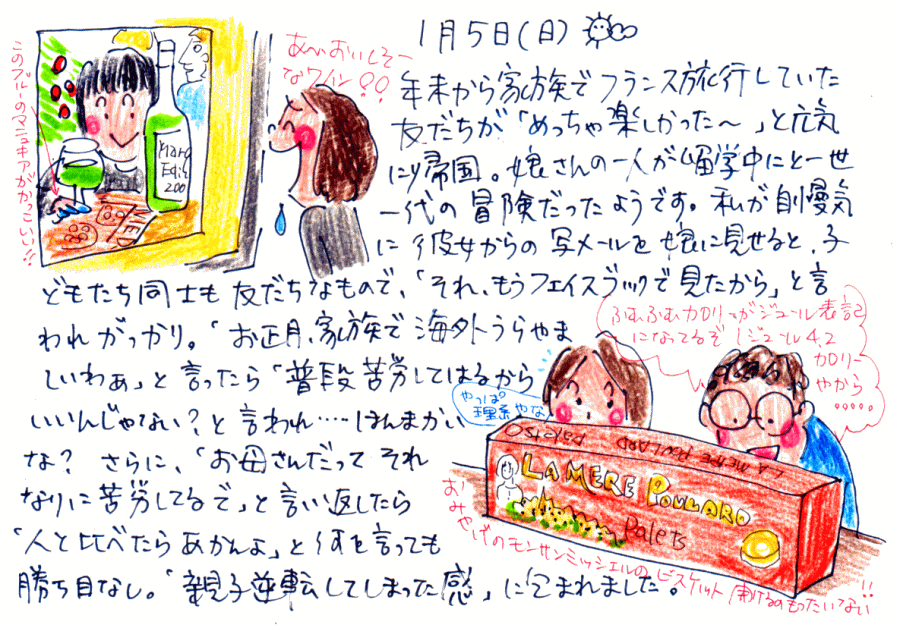 1月5日(日)
このブルーのマニキュアがかっこいい!!
あ〜おいしそー
なワイン!!
年末から家族でフランス旅行していた
友だちが「めっちゃ楽しかった〜」と元気
に帰国。娘さんの一人が留学中にと一世
一代の冒険だったようです。私が自慢気
に彼女からの写メールを娘に見せると、子
どもたち同士も友だちなもので、「それ、もうフェイスブックで見たから」と言
われがっかり。「お正月、家族で海外うらやま
しいわぁ」と言ったら「普段苦労してはるから
いいんじゃない?と言われ……ほんまかい
な? さらに、「お母さんだってそれ
なりに苦労してるで」と言い返したら
「人と比べたらあかんよ」と何を言っても
勝ち目なし。「親子逆転してしまった感」に包まれました。
ふむふむカロリーがジュール表記
になってるぞ 1ジュール4.2
カロリー
やから
・・・・・
やっぱ
理系やな
LA MERE POULARD
LA MERE POULARD
Palets
おみやげのモンサンミッシェルのビスケット開けるのもったいない!!